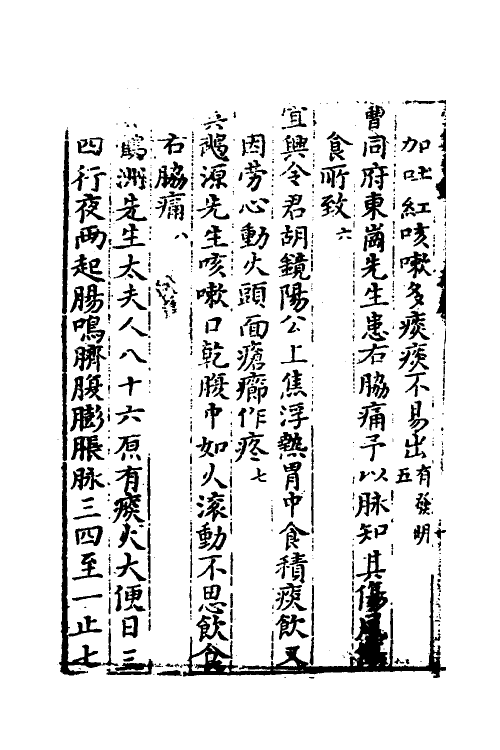 加吐紅咳嗽多痰痰不易出有發明五
曹同府東崗先生患右脇痛予以脉知其傷風
食所致六
宜興令君胡鏡陽公上焦浮熱胃中食積痰飲又
因劳心動火頭面瘡癤作疼七
鶴源先生咳嗽口乾腹中如火滚動不思飲食
右脇痛八
鶴洲先生太夫人八十六原有痰火大便日三
四行夜両起腸鳴臍腹膨脹脉三四至一止七